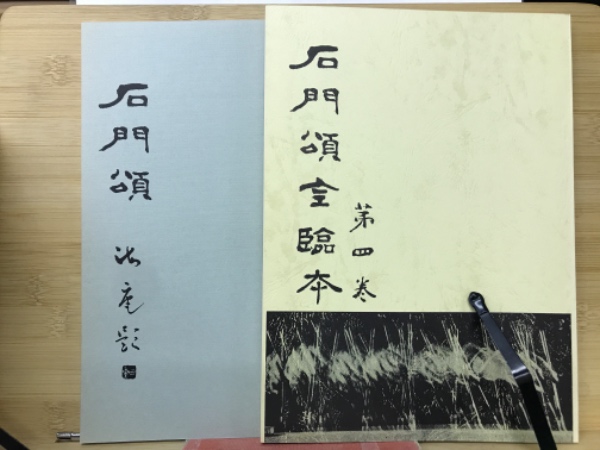 石門頌
石門頌全臨本
第四卷